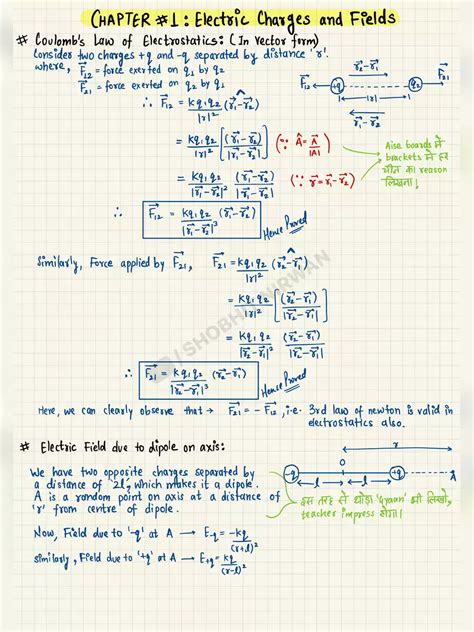 CHAPTER #1: Electric Charges and Fields
# Coulomb's Law of Electrostatics: (In vector form)
Consider two charges +q and -q separated by distance 'r'.
where, F⃗₁₂ = force exerted on q₁ by q₂
F⃗₂₁ = force exerted on q₂ by q₁
r⃗₂-r⃗₁
F⃗₁₂ +q q₂ F⃗₂₁
|r|
r⃗₁-r⃗₂
∴ F⃗₁₂ = kq₁q₂/|r|² (r⃗₁-r⃗₂)^
= kq₁q₂/|r|² [(r⃗₁-r⃗₂)/|r⃗₁-r⃗₂|] (∵ Â = A⃗/|A|)
= kq₁q₂/|r⃗₁-r⃗₂|² (r⃗₁-r⃗₂)/|r⃗₁-r⃗₂| (∵ r⃗ = r⃗₁-r⃗₂)
Aise boards में
brackets में हर
चीज का reason
लिखना!
∴ F⃗₁₂ = kq₁q₂/|r⃗₁-r⃗₂|³ (r⃗₁-r⃗₂) Hence Proved
Similarly, Force applied by F⃗₂₁, F⃗₂₁ = kq₁q₂/|r|² (r⃗₂-r⃗₁)^
= kq₁q₂/|r|² [(r⃗₂-r⃗₁)/|r⃗₂-r⃗₁|]
= kq₁q₂/|r⃗₂-r⃗₁|² (r⃗₂-r⃗₁)/|r⃗₂-r⃗₁|
∴ F⃗₂₁ = kq₁q₂/|r⃗₂-r⃗₁|³ (r⃗₂-r⃗₁) Hence Proved
Here, we can clearly observe that → F⃗₂₁ = - F⃗₁₂, i.e. 3rd law of newton is valid in
electrostatics also.
# Electric Field due to dipole on axis:
We have two opposite charges separated by
a distance of '2l', which makes it a dipole.
A is a random point on axis at a distance of
'r' from centre of dipole.
r
O
-q l l +q A
इस तरह से थोड़ा 'gyaan' भी लिखो,
teacher impress होगा!
Now, Field due to '-q' at A → E-q = -kq/(r+l)²
Similarly, Field due to '+q' at A → E+q = kq/(r-l)²
/SHOBHIT NIRWAN